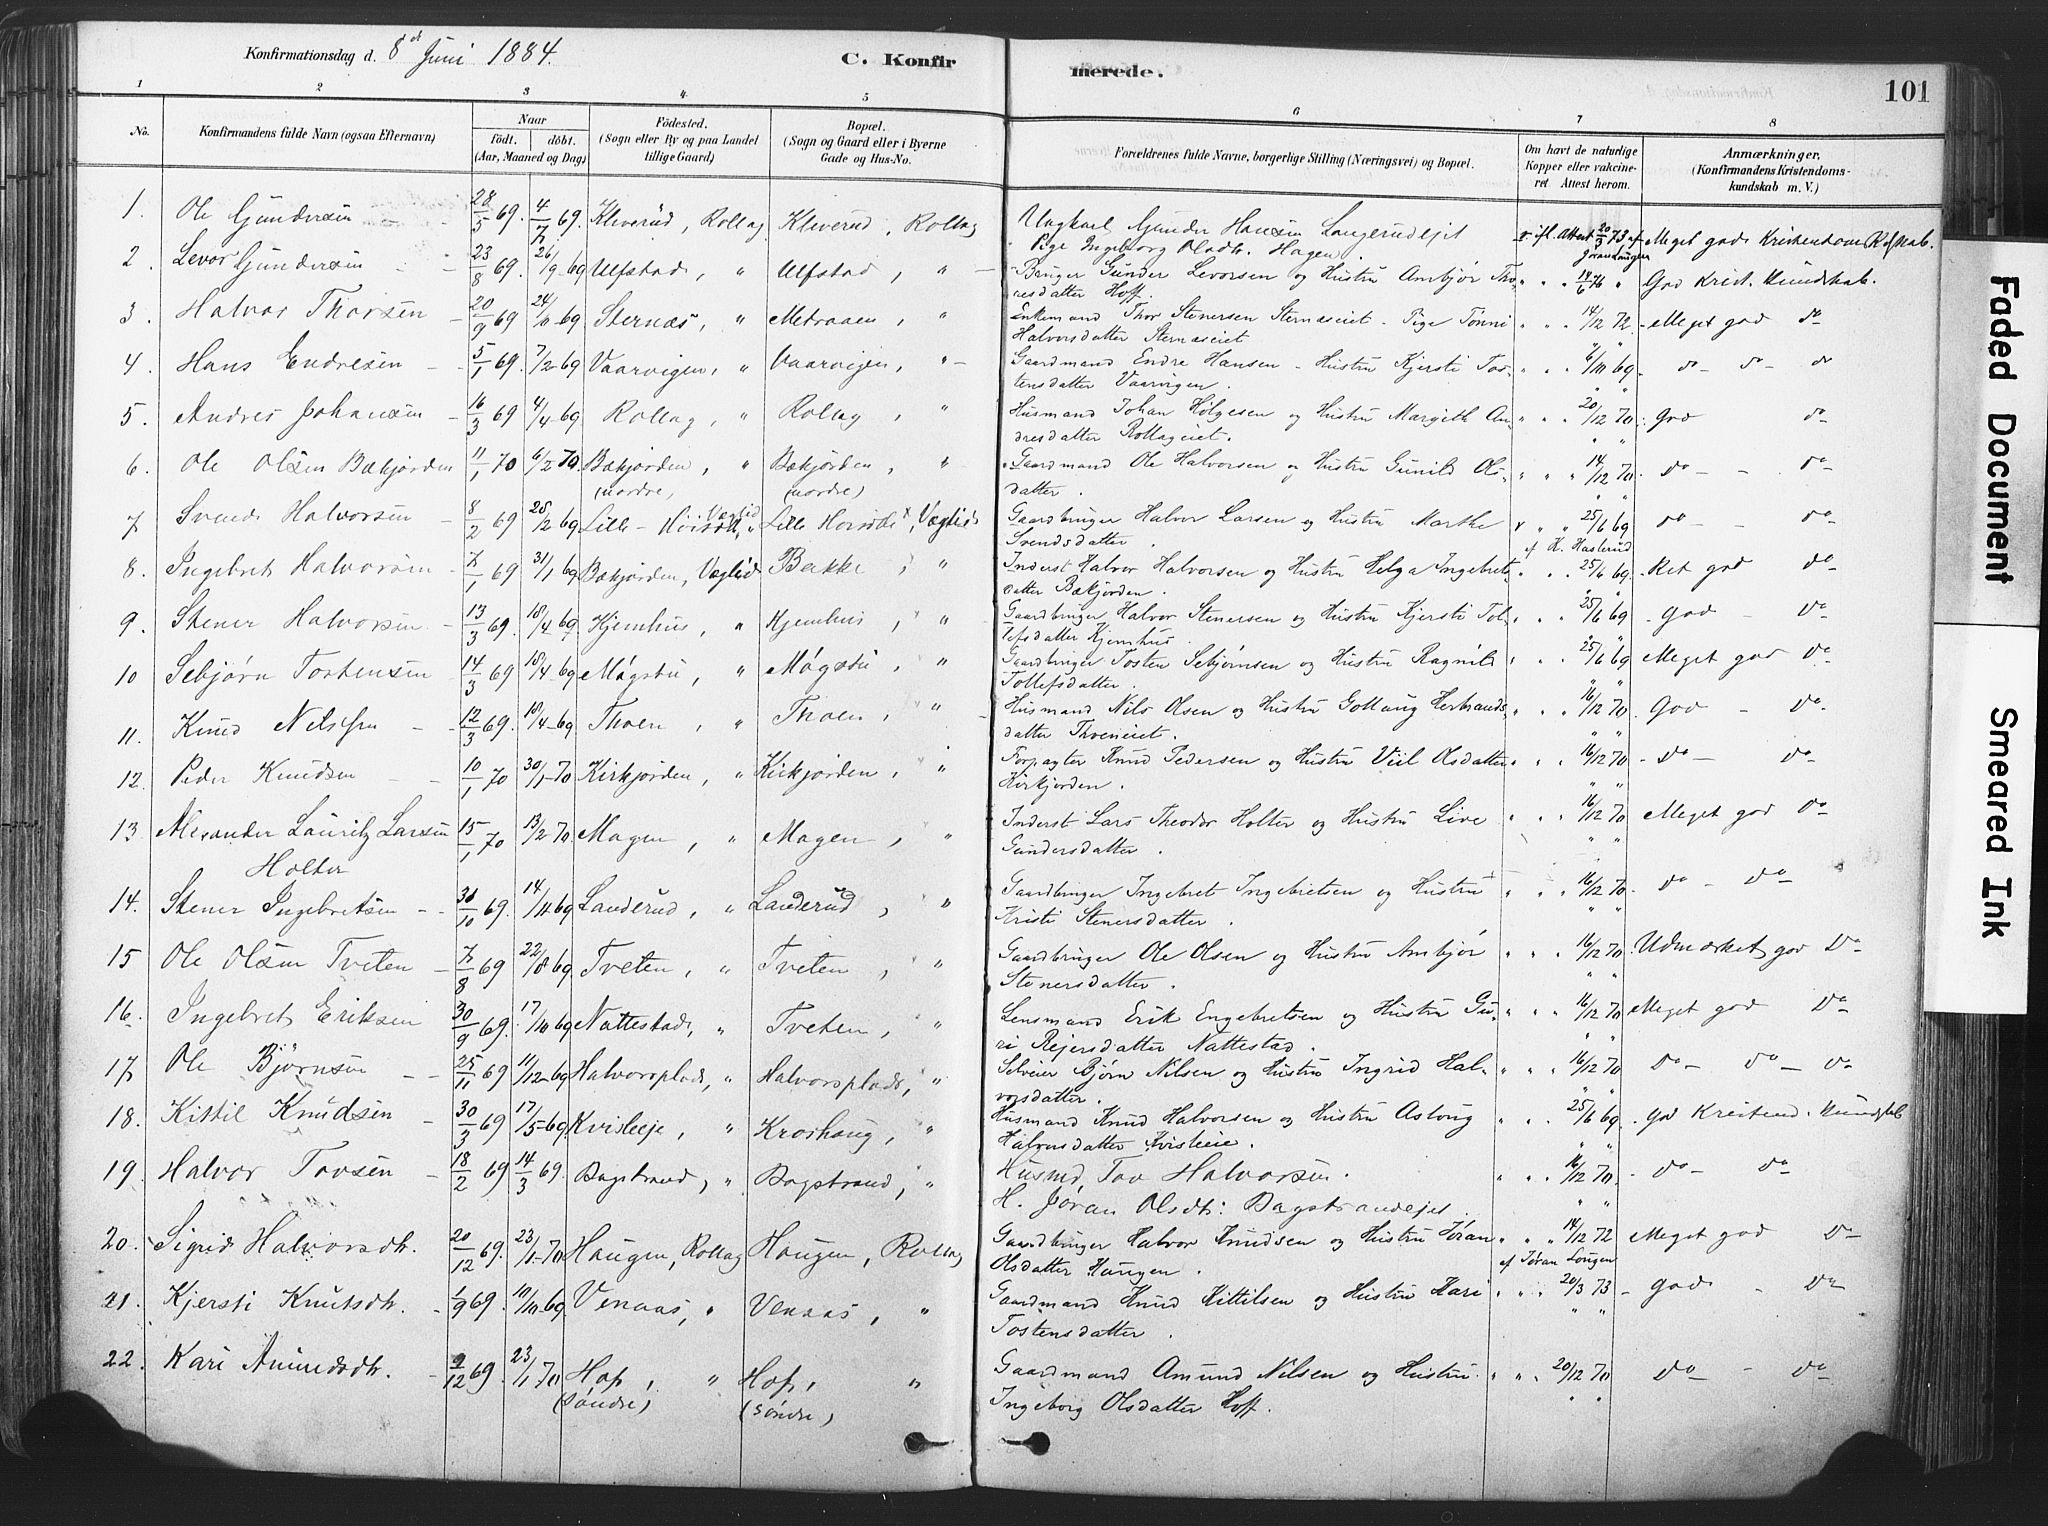 Konfirmationsdag d. 8de Juni 1884.
C. Konfirmerede.
101
1 2 3 4 5 6 7 8
No.
Konfirmandens fulde Navn (ogsaa Efternavn)
Naar
födt. döbt.
(Aar, Maaned og Dag)
Födested.
(Sogn eller By og paa Landet
tillige Gaard)
Bopæl.
(Sogn og Gaard eller i Byerne
Gade og Hus-No.
Forældrenes fulde Navne, borgerlige Stilling (Næringsvei) og Bopæl.
Om havt de naturlige
Kopper eller vakcine-
ret Attest herom.
Anmærkninger.
(Konfirmandens Kristendoms-
kundskab m. V.)
1. Ole Gundersen 28/5 69. 4/7 69. Kleverud, Rollag Kleverud, Rollag Ungkarl Gunder Hansen Langerudejet v. ifl. Attest 20/3 73 af Meget god Kristendoms Kdskab.
Pige Ingeborg Olsdtr. Hagen. Jøran Lougen
2. Levor Gundersen 23/8 69. 26/9-69 Ulfstad, " Ulfstad, " Gunder Levorsen og Hustru Ambjør Tho- " " 14/6 76 " God Krist. Kundskab.
resdatter Hoff.
3. Halvor Thorsen 20/9 69 24/10-69 Sternæs, " Medraaen, " Enkemand Thor Stenersen Sternæseiet - Pige Tønni " " 14/12 72 - Meget god do
Halvorsdatter Sternæseiet
4. Hans Endresen 5/1 69. 7/2-69 Vaarvigen, " Vaarvigen, " Gaardmand Endre Hansen - Hustru Kjersti Tos- " " 6/10 69 - do - do do
tensdatter Vaarvigen.
5. Andres Johansen 16/3 69 4/4-69 Rollag, " Rollag, " Husmand Johan Helgesen og Hustru Margith An- " " 20/12 70. God do
dresdatter Rollageiet.
6. Ole Olsen Bækjorden 11/1 70 6/2 70. Bækjorden, " Bækjorden, " Gaardmand Ole Halvorsen og Hustru Gunild Ols- " " 14/12 70. do - do
(nordre) (nordre) datter.
7 Svend Halvorsen 8/2 69 28/2 69 Lille-, Væglid Lille, Væglid Gaardbruger Halvor Larsen og Hustru Marthe v " " 25/6 69 do - do
Svendsdatter. af K. Haslerud
8. Ingebret Halvorsen 7/1 69 31/1 69 Bækjorden, Væglid Bække, " Inderst Halvor Halvorsen og Hustru Helga Ingebret- " " 25/6 69. Ret god do
datter Bækjorden.
9. Stener Halvorsen 13/3 69. 18/4-69. Kjemhus, " Kjemhus, " Gaardbruger Halvor Stenersen og Hustru Kjersti Tol- " " 25/6 69 - God - do
lefsdatter Kjemhus
10 Sebjørn Tostensen 14/3 69 18/4-69 Mogstu, " Mogstu, " Gaardbruger Tosten Sebjørnsen og Hustru Ragnild " " 25/6 69 Meget god do
Tollefsdatter.
11. Knud Nelssen 12/3 69. 18/4-69 Thoen, " Thoen, " Husmand Nils Olsen og Hustru Gollaug Herbrands- " " 16/12 70. God - do
datter Thoeneiet.
12. Peder Knudsen 10/1 70 30/1-70 Kirkjorden, " Kirkjorden, " Forpagter Knud Pedersen og Hustru Viil Olsdatter " " 16/12 70 - do - do
Kirkjorden.
13. Alexander Lauritz Larsen 15/1 70 13/2 70. Mogen, " Mogen, " Inderst Lars Theodor Holter og Hustru Live " " 16/12 70 Meget god do
Holter Gundersdatter.
14. Stener Ingebretsen 30/10 69. 14/11 69 Landerud, " Landerud, " Gaardbruger Ingebret Ingebretsen og Hustru " " 16/12 70. do - do
Kristi Stenersdatter.
15 Ole Olsen Tveten 7/8 69 22/8 69 Tveten, " Tveten, " Gaardbruger Ole Olsen og Hustru Ambjør " " 16/12 70. Udmærket god do
Stenersdatter.
16. Ingebret Eriksen 30/9 69. 17/10 69 Nattestad, " Tveten, " Lensmand Erik Engebretsen og Hustru Gu- " " 16/12 70 Meget god do
ri Rejersdatter Nattestad.
17. Ole Bjørnsen 25/11 69 11/12-69 Halvorsplads, " Halvorsplads, " Selveier Bjørn Nilsen og Hustru Ingrid Hal- " " 16/12 70 do - do - do
vorsdatter.
18. Kittil Knudsen 30/3 69 17/5-69 Kvisleeje, " Kroshaug, " Husmand Knud Halvorsen og Hustru Aslaug " " 25/6 69. God Kristend. Kundskab
Halvorsdatter Kvisleeie.
19. Halvor Tovsen 18/2 69 14/3 69. Dagstrand, " Dagstrand, " Husmd. Tov Halvorsen. " " 16/12 70. - do - do
H. Jøran Olsdtr. Dagstrandejet.
20. Sigrid Halvorsdtr. 20/12 69. 23/1-70 Haugen, Rollag Haugen, Rollag Gaardbruger Halvor Knudsen og Hustru Jøran " " 14/12 72 Meget god do
Olsdatter Haugen. af Jøran Lougen
21. Kjersti Knutsdtr. 1/9 69. 10/10-69 Venaas, " Venaas, " Gaardmand Knud Kittilsen og Hustru Kari " " 20/3 73 - God do
Tostensdatter.
22. Kari Amundsdtr. 9/12 69. 23/1 70 Hof, " Hof, " Gaardmand Amund Nilsen og Hustru " " 20/12 70 do - do
(Søndre) (Søndre) Ingeborg Olsdatter Hoff.
Faded Document
Smeared Ink